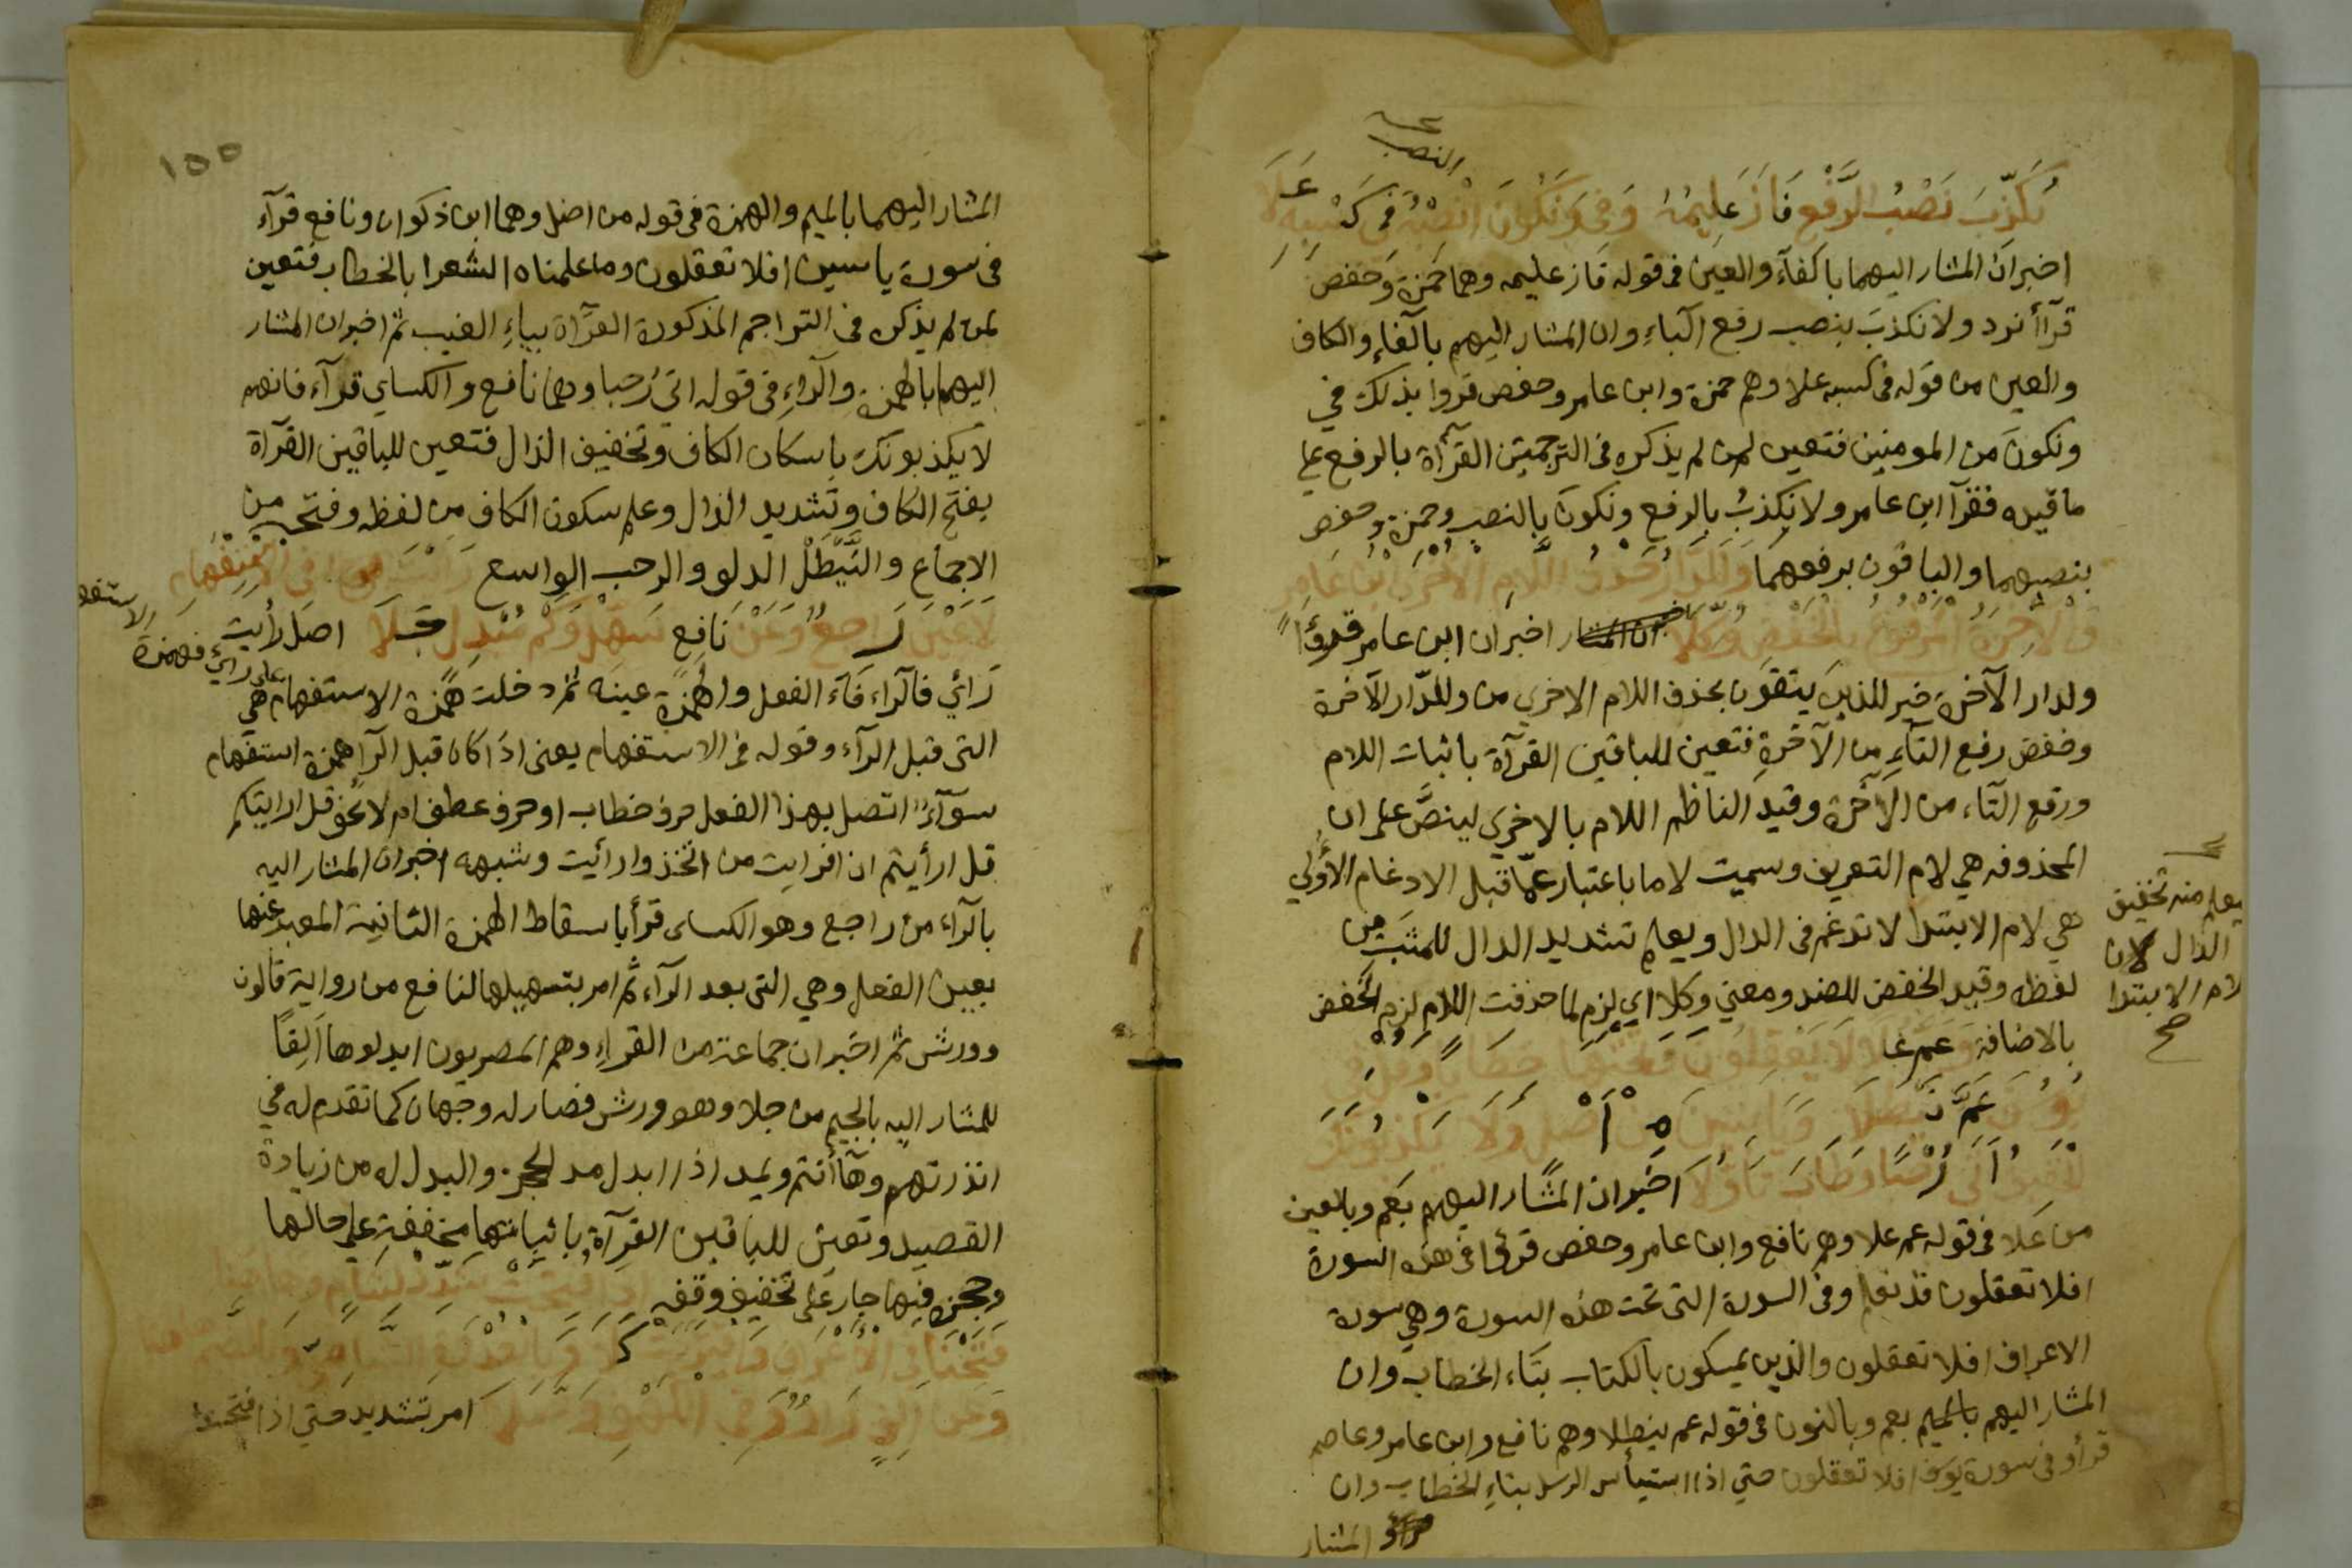 النصب
نكذب نصب الرفع فاز عليمه وفي ونكون انصبه في كسبه علا
اخبر ان المشار اليهما باكفآء والعين في قوله فاز عليمه وهما حمزة وحفص
قرآ أنرد ولا نكذب بنصب رفع الباء وان المشار اليهم بالفاء والكاف
والعين من قوله في كسبه علا وهم حمزة وابن عامر وحفص قروا بذلك في
ونكون من المومنين فتعين لمن لم يذكره في الترجمتين القرآة بالرفع على
ما قيده فقرآ ابن عامر ولا نكذب بالرفع ونكون بالنصب وحمزة وحفص
بنصبهما والباقون برفعهما وللدار حذف اللام الاخرى ابن عامر
والاخرة المرفوع بالخفض وكلا اخبر ان ابن عامر قرأ
ولدار الآخرة خير للذين يتقون بحذف اللام الاخري من وللدار الآخرة
وخفض رفع التاء من الآخرة فتعين للباقين القرآة باثبات اللام
ورفع التاء من الآخرة وقيد الناظم اللام بالاخري لينص على ان
المحذوفه هي لام التعريف وسميت لاما باعتبار عما قبل الادغام الأولي
هي لام الابتدا لا تدغم في الدال ويعلم تشديد الدال للمثبت من
لفظه وقيد الخفض للضد ومعني وكلا اي لزم لما حذفت اللام لزم الخفض
بالاضافة وعم علا لا يعقلون وتحتها خطابا وقل في
يوسف عم نيطلا وياسين من اصل ولا يكذبونك
الخفيف اتى رحبا وطاب تاولا اخبر ان المشار اليهم بعم وبالعين
من علا في قوله عم علا وهم نافع وابن عامر وحفص قرؤا في هذه السورة
افلا تعقلون قد نعلم وفي السورة التي تحت هذه السورة وهي سورة
الاعراف افلا تعقلون والذين يمسكون بالكتاب بتاء الخطاب وان
المشار اليهم بالميم بعم وبالنون في قوله عم نيطلا وهم نافع وابن عامر وعاصم
قرأو في سورة يوسف افلا تعقلون حتي اذا استيأس الرسل بتاء الخطاب وان
المشار
يعلم منه تخفيف
الدال لان
لام الابتدا
صح
١٥٥
المشار اليهما بالميم والهمزة في قوله من اصل وهما ابن ذكوان ونافع قرآء
في سورة ياسين افلا تعقلون وما علمناه الشعر بالخطاب فتعين
لمن لم يذكره في التراجم المذكورة القرآة بياء الغيب ثم اخبر ان المشار
اليهما بالهمزة والراء في قوله اتى رحبا وهما نافع والكساي قرآء فانهم
لا يكذبونك باسكان الكاف وتخفيف الذال فتعين للباقين القرآة
بفتح الكاف وتشديد الذال وعلم سكون الكاف من لفظه وفتحه من
الاجماع والنيطل الدلو والرحب الواسع رأيت في الاستفهام
لا عين راجع وعن نافع سهل وكم مبدل جلا اصل رأيت
الاستفهام
على رائي فهمزة
رائي فالراء فاء الفعل والهمزة عينه ثم دخلت همزة الاستفهام هي
التي قبل الرآء وقوله في الاستفهام يعني اذا كان قبل الرآ همزة استفهام
سوآء اتصل بهذا الفعل حرف خطاب او حرف عطف ام لا نحو قل ارايتكم
قل ارأيتم ان افرايت من اتخذ وارأيت وشبهه اخبر ان المشار اليه
بالرآء من راجع وهو الكساى قرأ باسقاط الهمزة الثانية المعبر عنها
بعين الفعل وهي التي بعد الرآء ثم امر بتسهيلها لنافع من رواية قالون
وورش ثم اخبر ان جماعة من القراء وهم المصريون ابدلوها الفا
للمشار اليه بالجيم من جلا وهو ورش فصار له وجهان كما تقدم له في
انذرتهم وهآ أنتم ويمد اذا ابدل مد الحجز والبدل له من زيادة
القصيد وتعين للباقين القرآة باثباتها مخففة على حالها
وحمزة فيها جار على تخفيف وقفه اذا فتحت شدد لشام وهاهنا
فتحنا وفي الأعراف واقتربت كلا وبالغدوة الشامي بالضم هاهنا
وعن الف واو وفي الكهف وصلا امر بتشديد حتي اذا فتحت